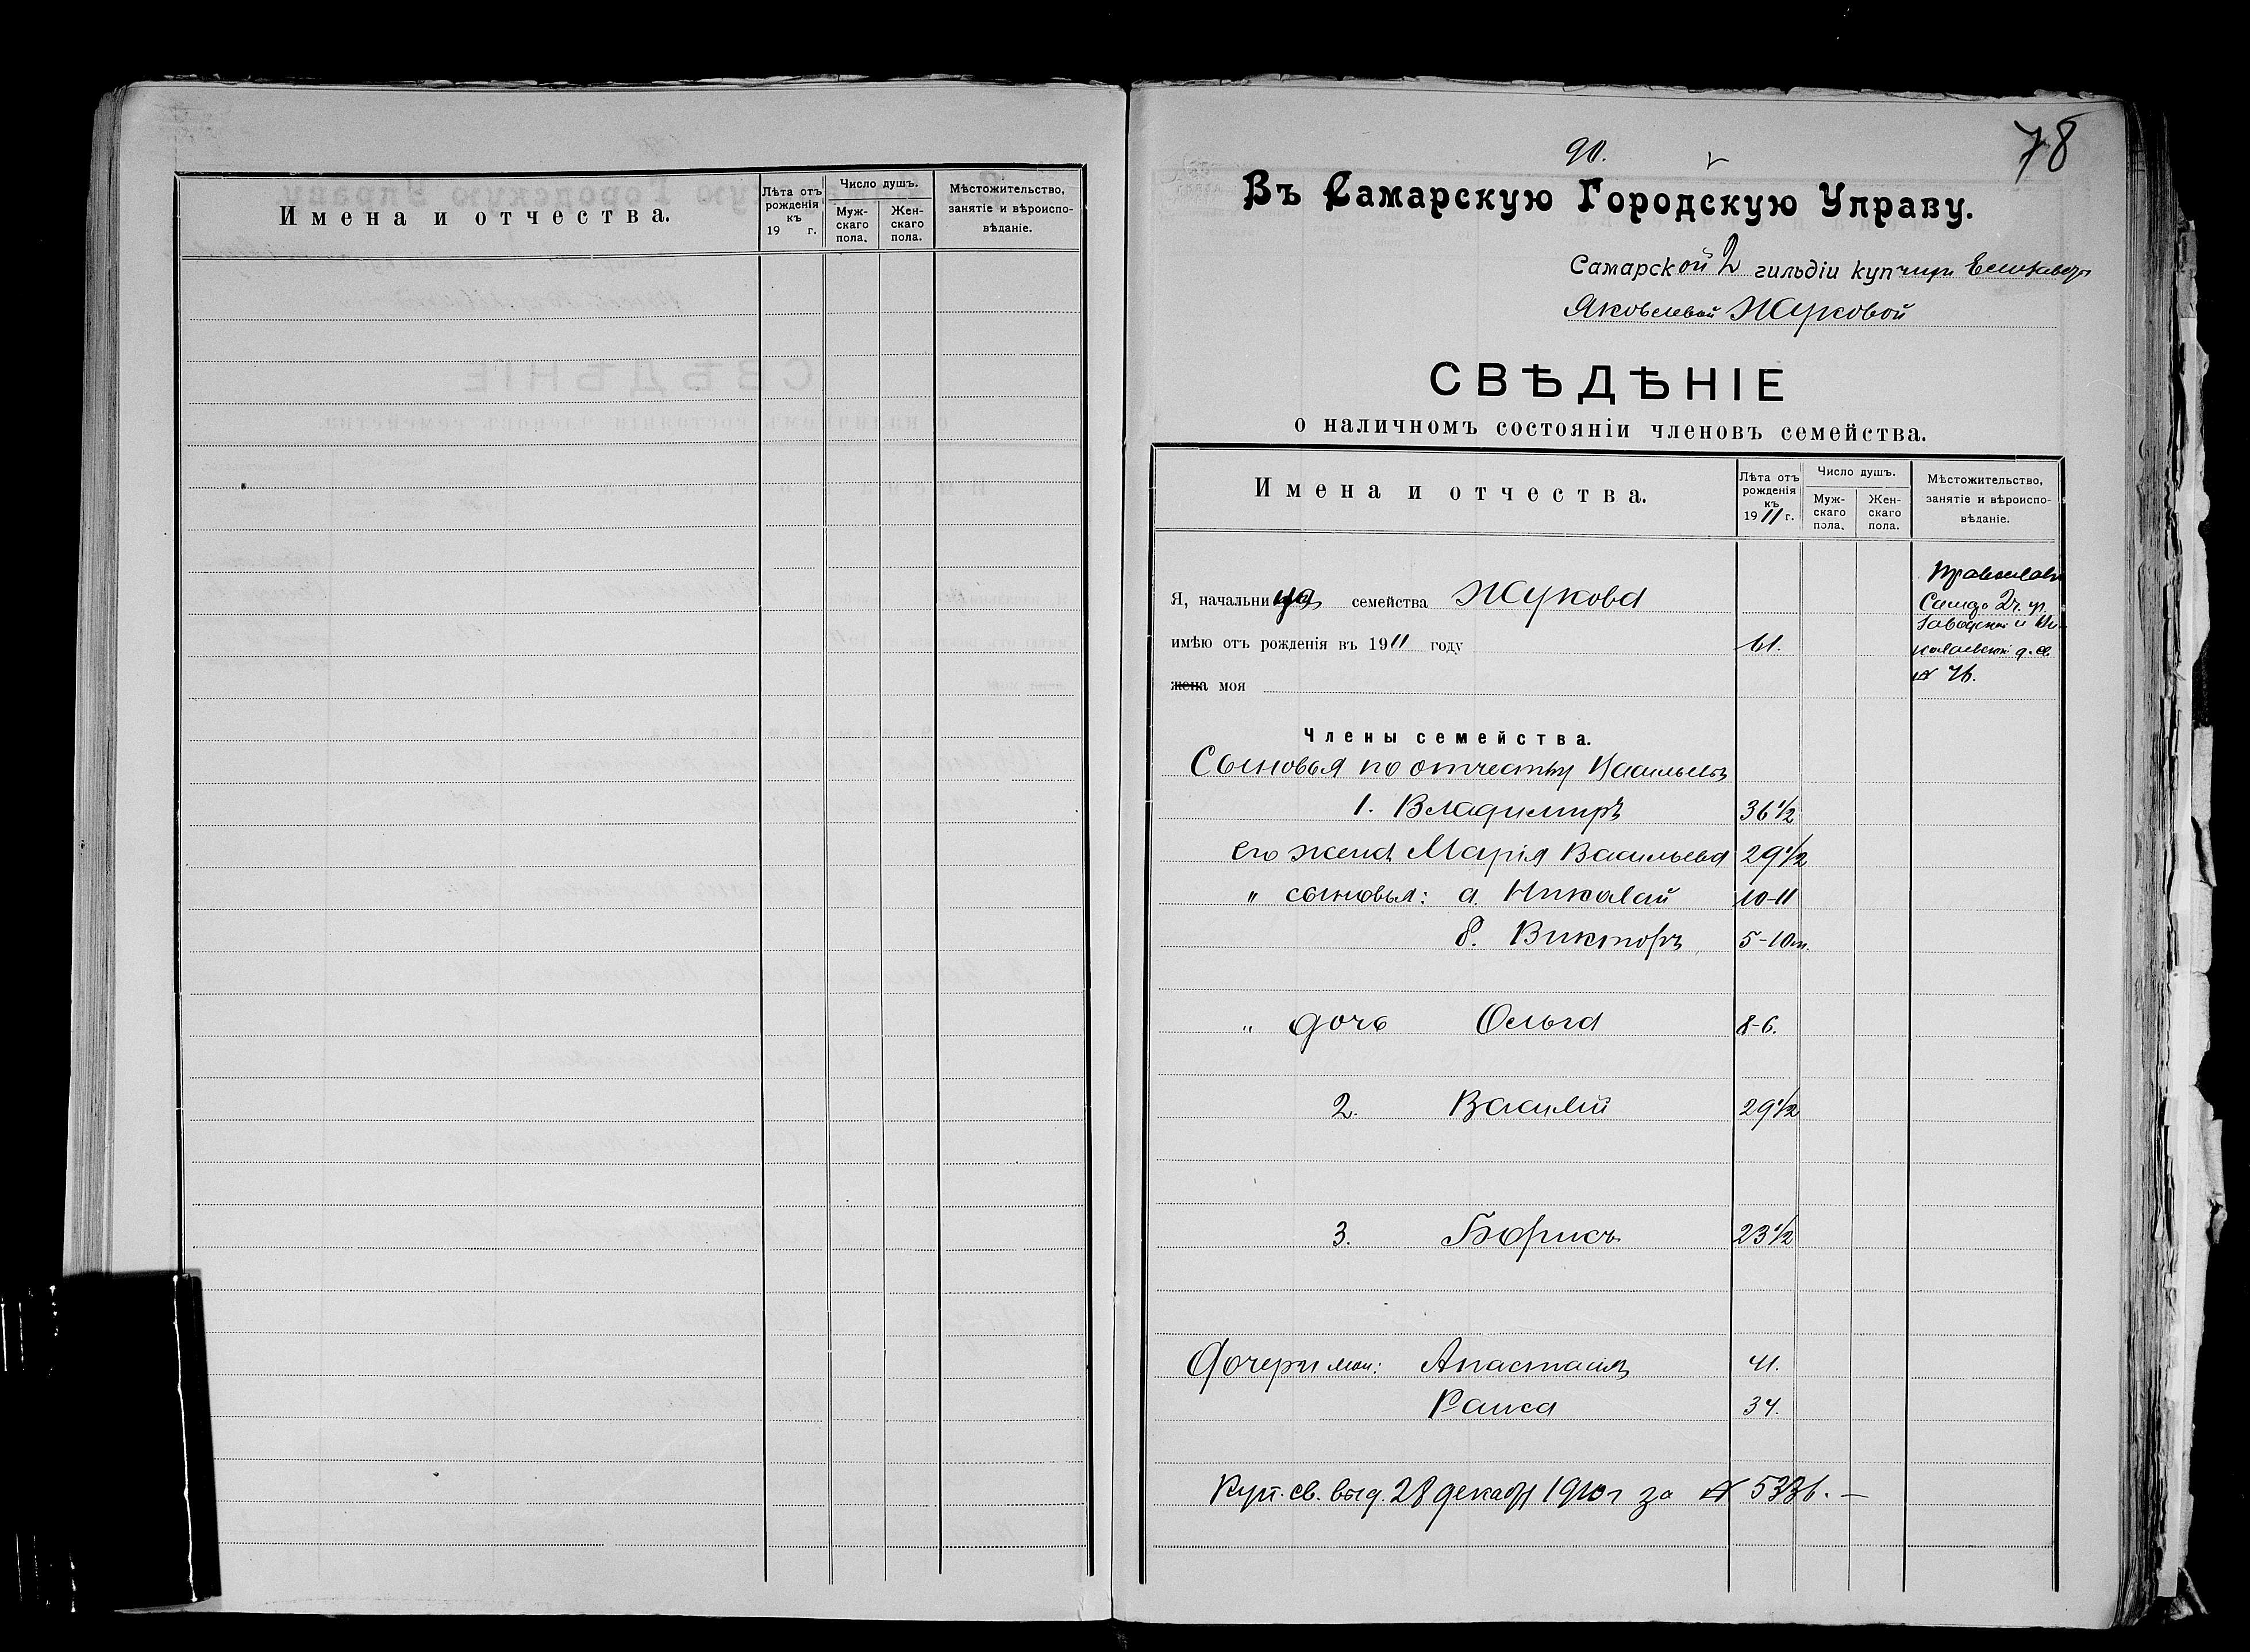 Имена и отчества.
Лѣта отъ рожденія къ 19 г.
Число душъ.
Муж-скаго пола.
Жен-скаго пола.
Мѣстожительство, занятіе и вѣроиспо-вѣданіе.
90.
78
Въ Самарскую Городскую Управу.
Самарской 2 гильдіи купчихи Елизаветы
Яковлевой Жуковой
СВѢДѢНІЕ
о наличномъ состояніи членовъ семейства.
Имена и отчества.
Лѣта отъ рожденія къ 1911 г.
Число душъ.
Муж-скаго пола.
Жен-скаго пола.
Мѣстожительство, занятіе и вѣроиспо-вѣданіе.
Я, начальница семейства Жукова
Православн
Самар 2 ч. уг.
Заводской и Ни-
имѣю отъ рожденія въ 1911 году 61.
колаевской д. с.
жена моя
№ 76.
Члены семейства.
Сыновья по отчеству Васильевы
1. Владиміръ 36 1/2
его жена Марія Васильева 29 1/2
" сыновья: а. Николай 10-11
б. Викторъ 5-10 м.
" дочь Ольга 8-6.
2. Василій 29 1/2
3. Борисъ 23 1/2
Дочери мои: Анастасія 41.
Раиса 34.
Куп. св. выд. 28 декабря 1910 г за № 5336. —